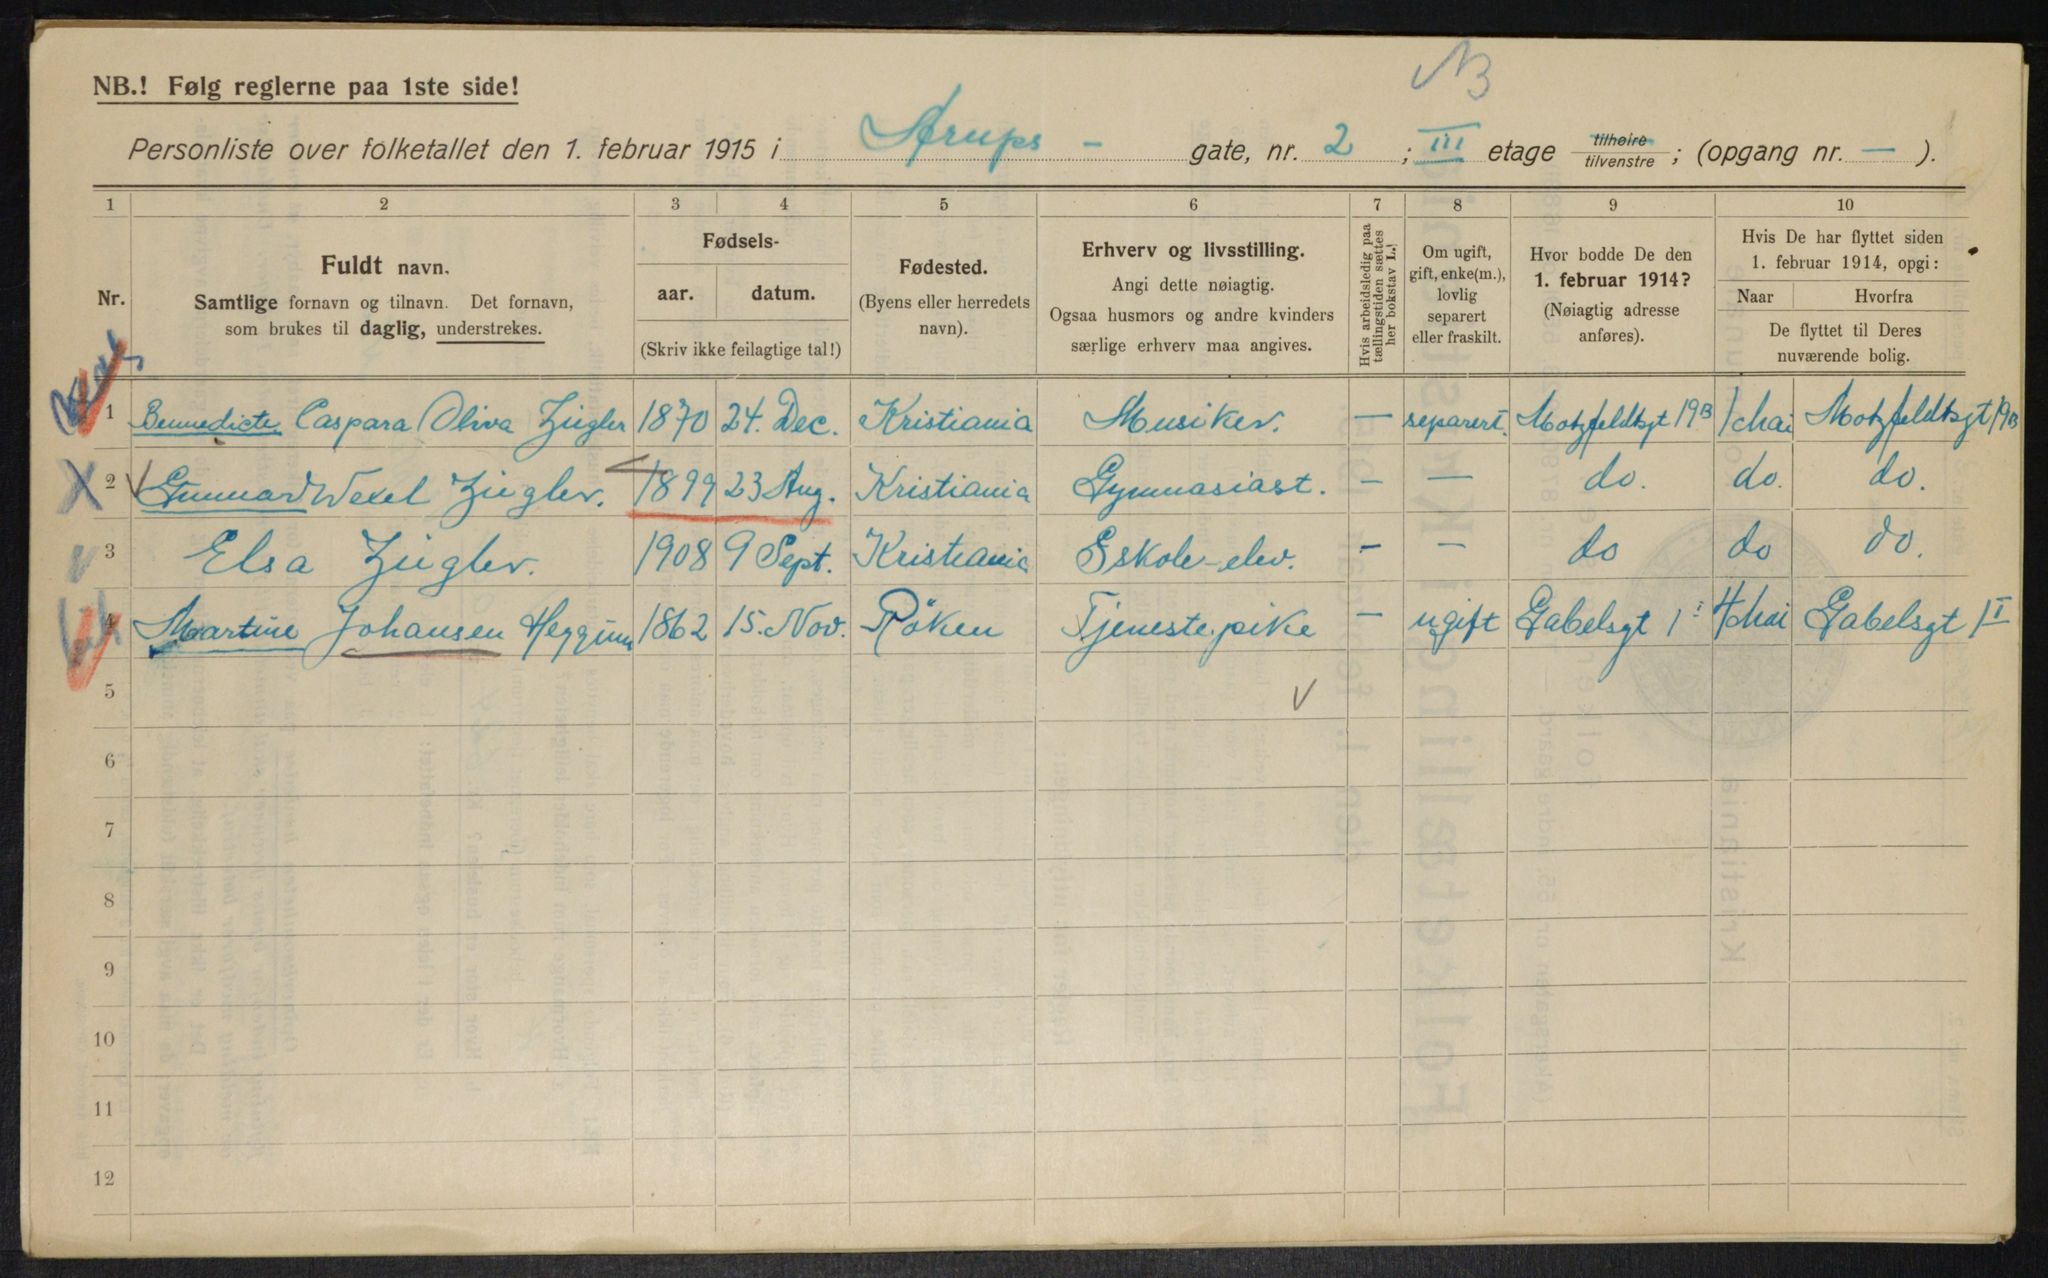 NB
NB.! Følg reglerne paa 1ste side!
Personliste over folketallet den 1. februar 1915 i Arups - gate, nr. 2 ; III etage tilhøire tilvenstre ; (opgang nr. — ).
1 2 3 4 5 6 7 8 9 10
Nr.
Fuldt navn.
Samtlige fornavn og tilnavn. Det fornavn,
som brukes til daglig, understrekes.
Fødsels-
aar. datum.
(Skriv ikke feilagtige tal!)
Fødested.
(Byens eller herredets
navn).
Erhverv og livsstilling.
Angi dette nøiagtig.
Ogsaa husmors og andre kvinders
særlige erhverv maa angives.
Hvis arbeidsledig paa
tællingstiden sættes
her bokstav L.!
Om ugift,
gift, enke(m.),
lovlig
separert
eller fraskilt.
Hvor bodde De den
1. februar 1914?
(Nøiagtig adresse
anføres).
Hvis De har flyttet siden
1. februar 1914, opgi:
Naar Hvorfra
De flyttet til Deres
nuværende bolig.
1 Bennedicte Caspara Oliva Zigler 1870 24. Dec. Kristiania Musiker. — separert. Motzfeldtsgt 19B 1/mai Motzfeldtsgt 19B
2 Gunnar Wexel Ziegler. 1899 23 Aug. Kristiania Gymnasiast. - — do. do. do.
3 Elsa Ziegler. 1908 9 Sept. Kristiania Sskole-elev. - — do do do.
4 Martine Johansen Heggum 1862 15. Nov. Röken Tjenestepike - ugift Gabelsgt 1 I 4/mai Gabelsgt 1 I
5
6
7
8
9
10
11
12